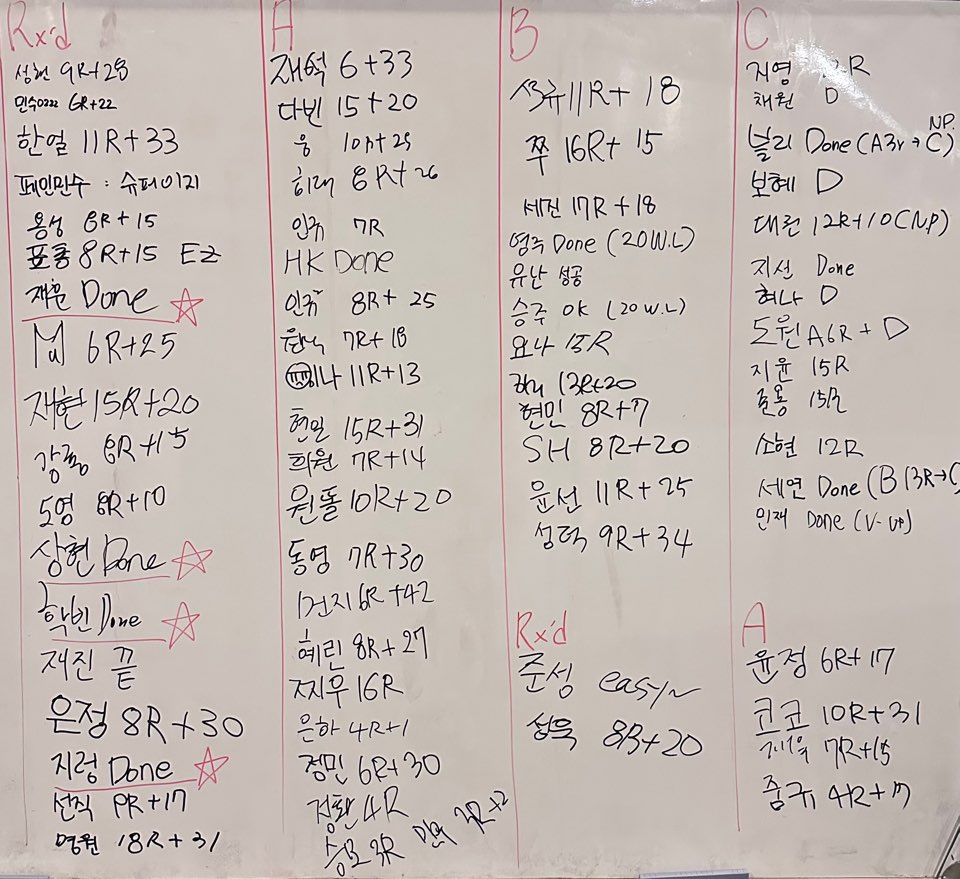 Rx'd
성현 9R+28
민수0222 6R+22
한열 11R+33
페인민수 : 슈퍼이지
용성 8R+15
표종 8R+15 EZ
재윤 Done
MJ 6R+25
재현 15R+20
강종 8R+15
도영 8R+10
상현 Done
학빈 Done
재진 끝
은정 8R+30
지렁 Done
선직 9R+17
명원 18R+31
A
재혁 6+33
다빈 15+20
웅 10R+25
희래 8R+26
인규 7R
HK Done
인규 8R+25
7R+18
나 11R+13
현일 15R+31
희원 7R+14
원돌 10R+20
동영 7R+30
건지 6R+42
혜린 8R+27
찌우 16R
은하 4R+1
정민 6R+30
정환 4R
승모 3R
B
석규 11R+18
쭈 16R+15
세진 17R+18
영주 Done (20W.L)
유난 성공
승주 OK (20W.L)
요나 15R
하니 13R+20
현민 8R+7
SH 8R+20
윤선 11R+25
성덕 9R+34
Rx'd
준성 easy~
성욱 8R+20
C
지영 R
채원 D
블리 Done (A3r→C) NP.
보혜 D
대런 12R+10 (N.P)
지선 Done
혀나 D
도원 A6R+D
지윤 15R
준용 15R
소현 12R
세연 Done (B 13R→C)
인재 Done (V-up)
A
윤정 6R+17
코코 10R+31
7R+15
중규 4R+17